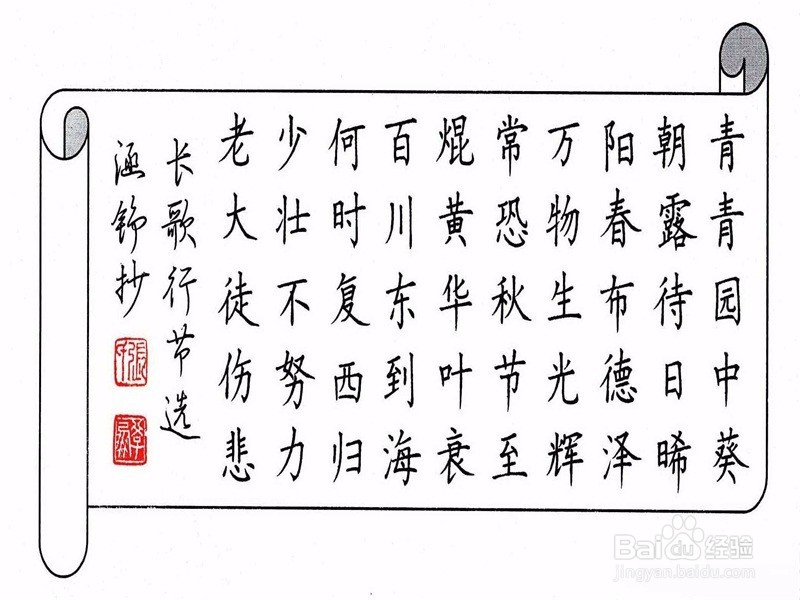 青青园中葵
朝露待日晞
阳春布德泽
万物生光辉
常恐秋节至
焜黄华叶衰
百川东到海
何时复西归
少壮不努力
老大徒伤悲
长歌行节选
涵铮抄
Baidu经验
jingyan.baidu.com